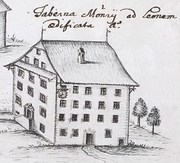 Taberna Monrÿ ad Leonem
Ædificata A°.